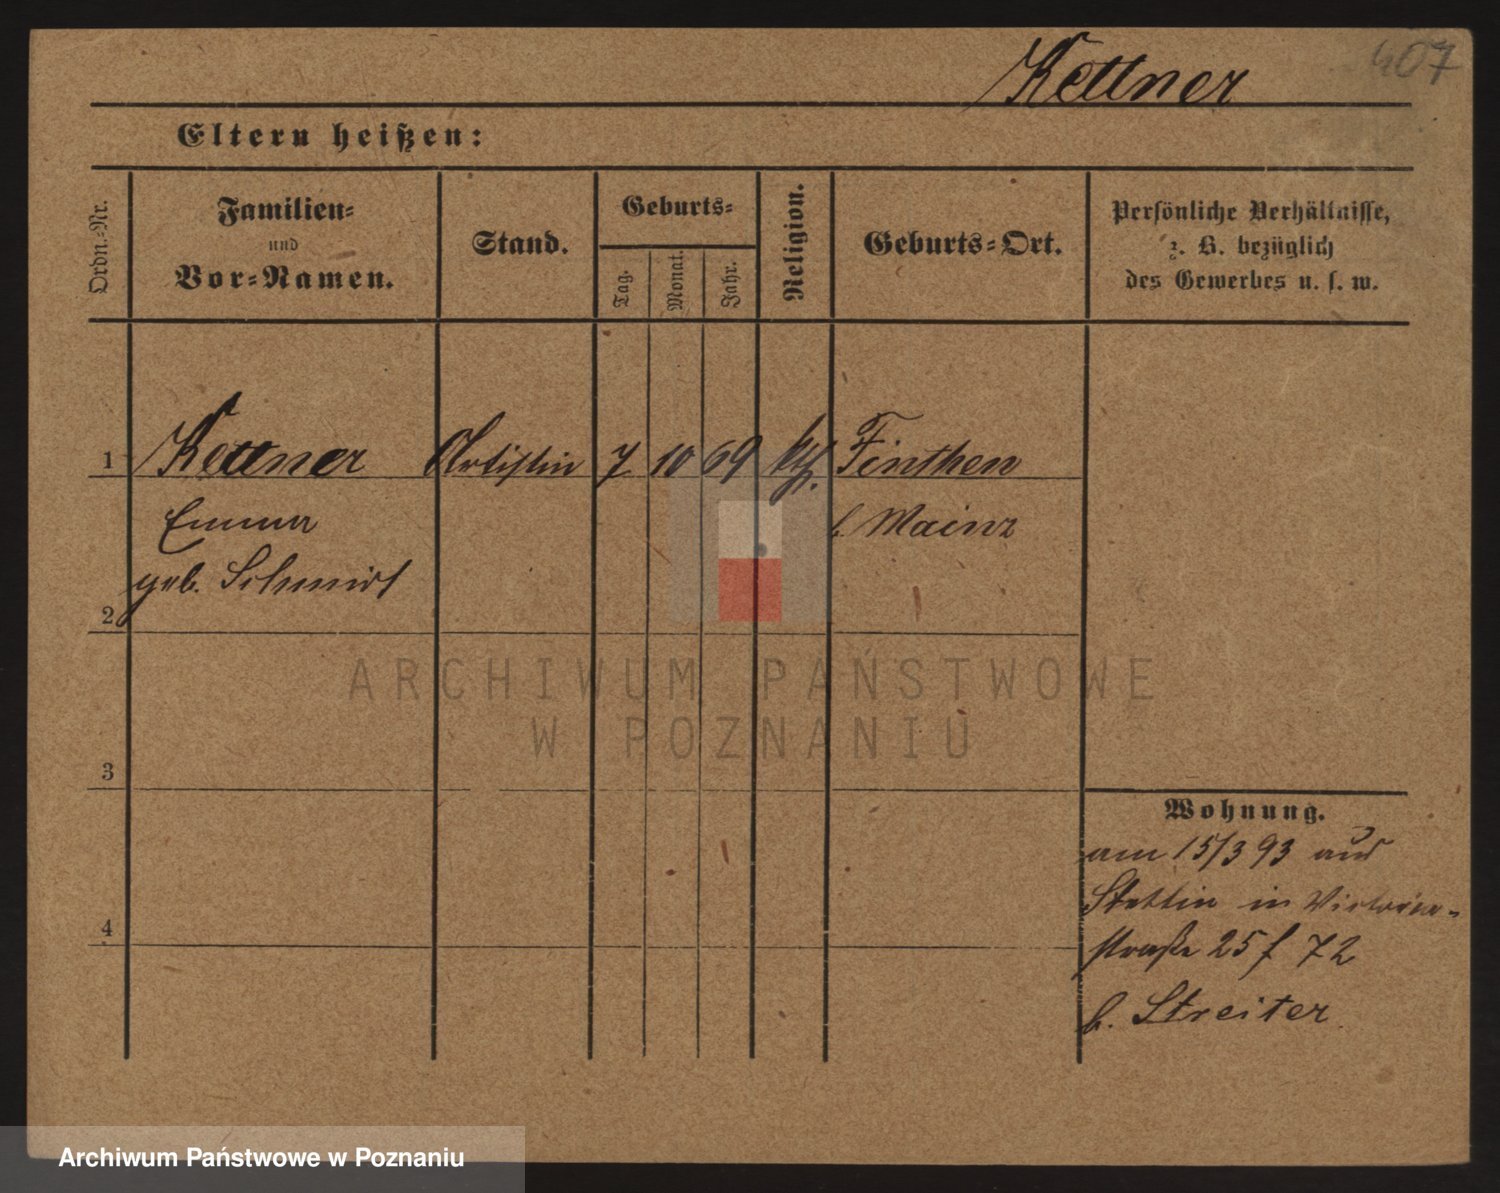 Kettner 407
Eltern heißen:
Ordn.-Nr.
Familien-
und
Vor-Namen.
Stand.
Geburts-
Tag.
Monat.
Jahr.
Religion.
Geburts-Ort.
Persönliche Verhältnisse,
z. B. bezüglich
des Gewerbes u. s. w.
1 Kettner Artistin 7 10 69 kth. Finthen
Emma b. Mainz
geb. Schmidt
2
3
4
Wohnung.
am 15/3 93 aus
Stettin in Victoria-
straße 25 f 72
b. Streiter
ARCHIWUM PAŃSTWOWE
W POZNANIU
Archiwum Państwowe w Poznaniu